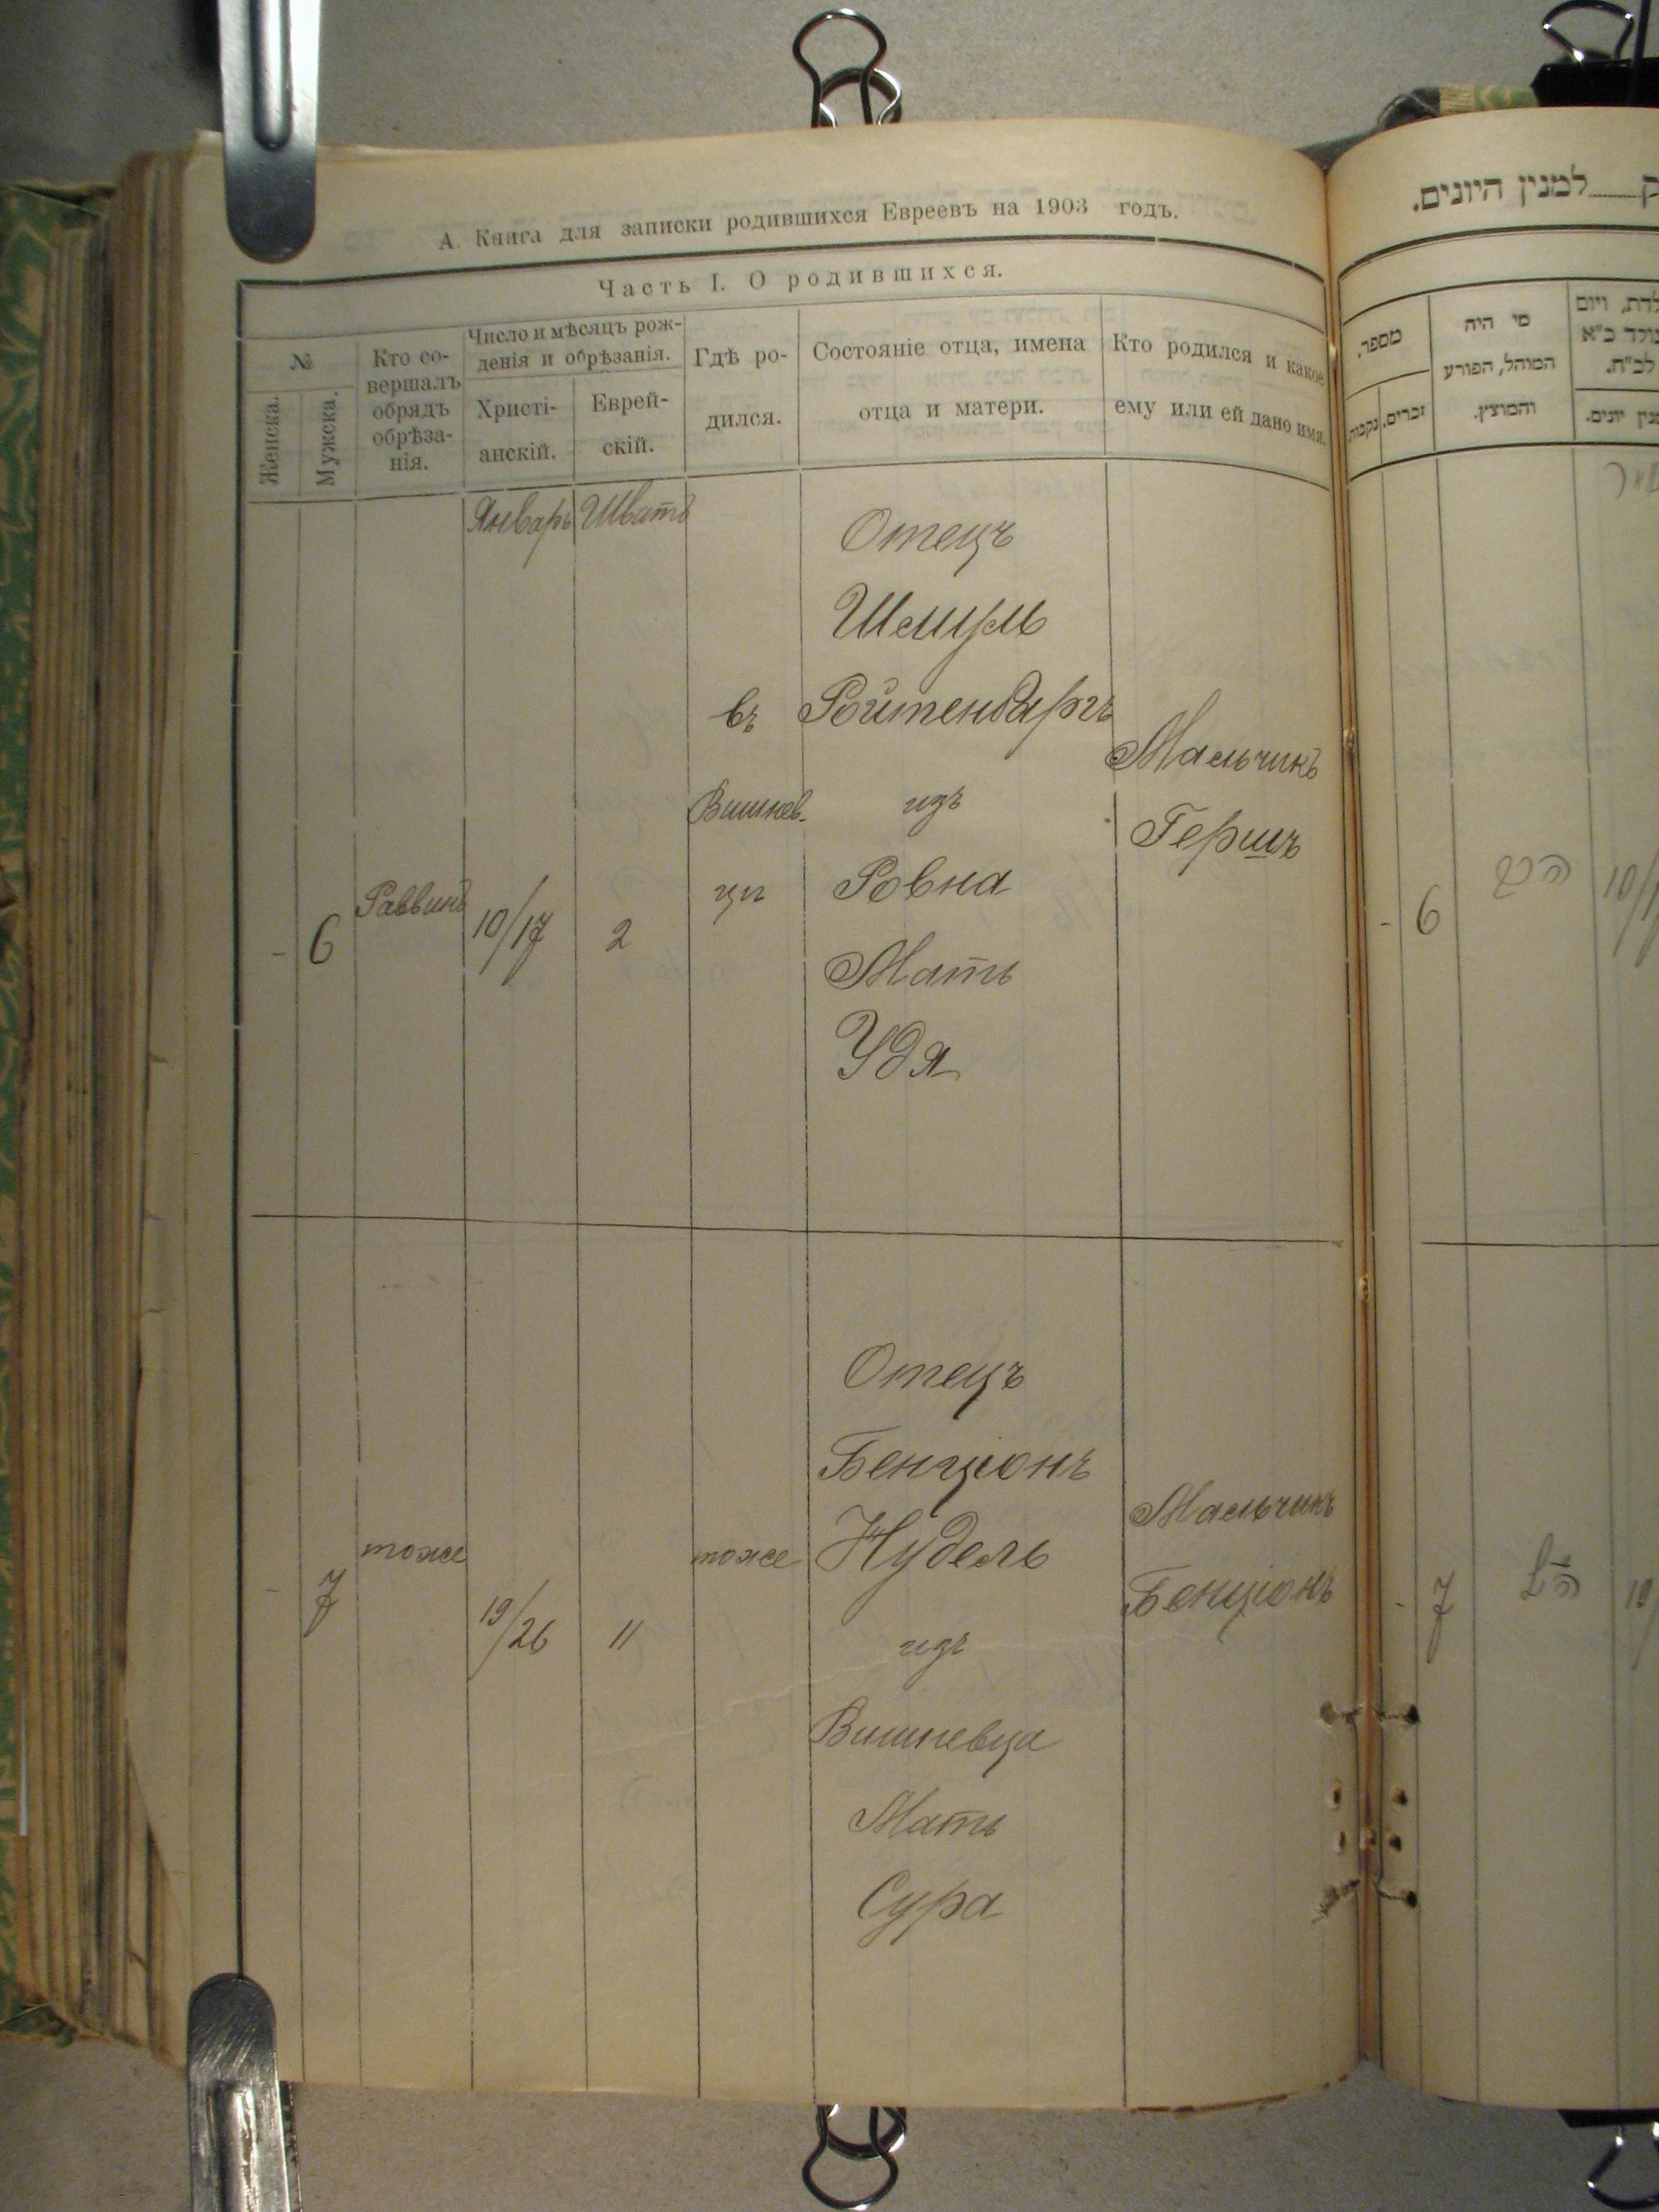 А. Книга для записки родившихся Евреевъ на 1903 годъ.
Часть I. О родившихся.
№
Женска.
Мужска.
Кто со-
вершалъ
обрядъ
обрѣза-
нія.
Число и мѣсяцъ рож-
денія и обрѣзанія.
Христі-
анскій.
Еврей-
скій.
Гдѣ ро-
дился.
Состояніе отца, имена
отца и матери.
Кто родился и какое
ему или ей дано имя.
Январь Шватъ
- 6 Раввинъ 10/17 2
въ
Вишнев-
цѣ
Отецъ
Шмуль
Ройтенбаргъ
изъ
Ровна
Мать
Удя
Мальчикъ
Гершъ
- 7 тоже 19/26 11 тоже
Отецъ
Бенціонъ
Нудель
изъ
Вишневца
Мать
Сура
Мальчикъ
Бенціонъ
למנין היונים.
מספר.
זכרים.
נקבות.
מי היה
המוהל, הפורע
והמוצץ.
- 6
- 7